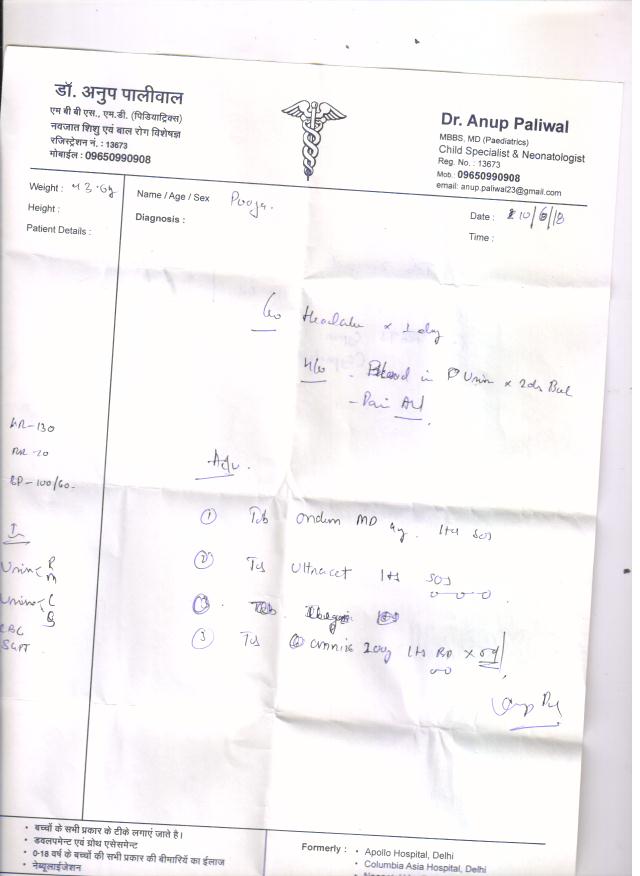 डॉ. अनुप पालीवाल
एम बी बी एस., एम.डी. (पिडियाट्रिक्स)
नवजात शिशु एवं बाल रोग विशेषज्ञ
रजिस्ट्रेशन नं. : 13673
मोबाईल : 09650990908
Dr. Anup Paliwal
MBBS, MD (Paediatrics)
Child Specialist & Neonatologist
Reg. No. : 13673
Mob : 09650990908
email: anup.paliwal23@gmail.com
Weight :
Height :
Patient Details :
Name / Age / Sex Pooja.
Diagnosis :
Date : 10/6/18
Time :
C/o Headache x 1 day
H/o - Blood in Urine x 2d
- Pain Abd
HR-130
RR-20
BP-100/60
Adv.
① Tab ondem MD 4mg 1tab SOS
② Tab Ultracet 1tab SOS
③ Tab 200mg 1tab BD x 5d
Urine R
M
Urine C
S
CBC
SGPT
• बच्चों के सभी प्रकार के टीके लगाएं जाते है।
• डवलपमेन्ट एवं ग्रोथ एसेसमेन्ट
• 0-18 वर्ष के बच्चों की सभी प्रकार की बीमारियों का ईलाज
• नेब्यूलाईजेशन
Formerly : • Apollo Hospital, Delhi
• Columbia Asia Hospital, Delhi